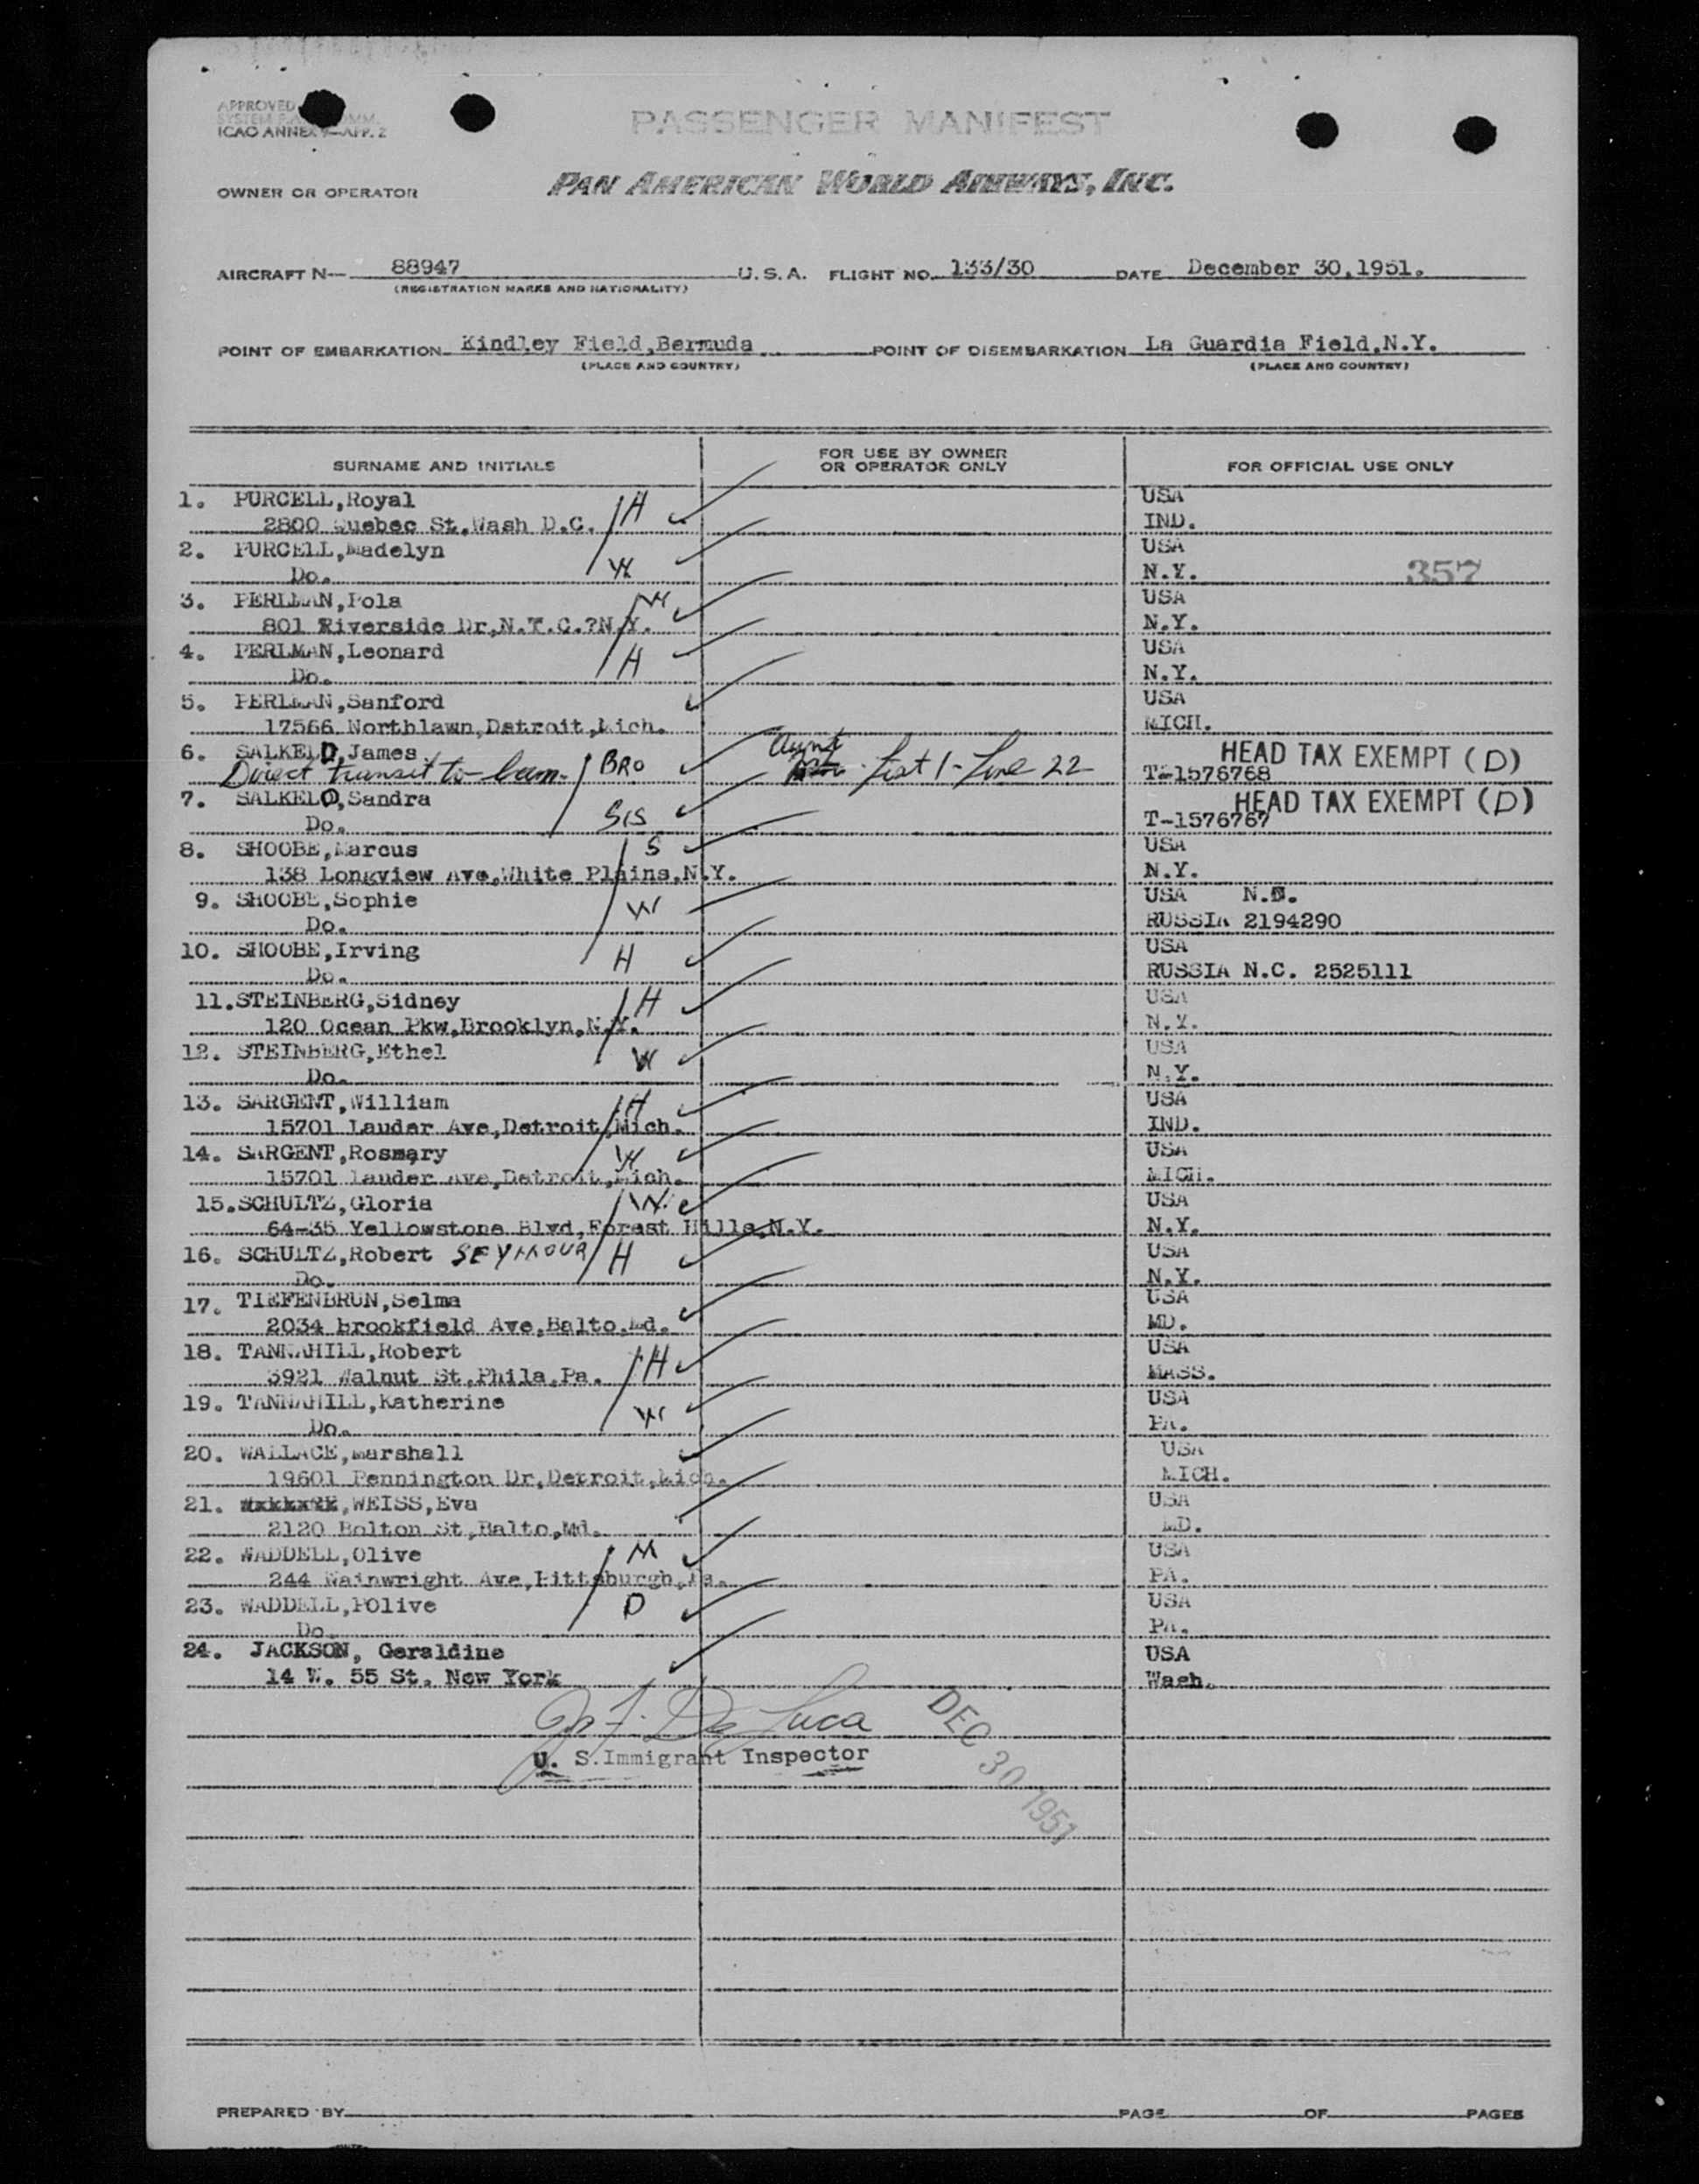 APPROVED
ICAO ANNEX 9—APP. 2
PASSENGER MANIFEST
OWNER OR OPERATOR PAN AMERICAN WORLD AIRWAYS, INC.
AIRCRAFT N— 88947 U. S. A. FLIGHT NO. 133/30 DATE December 30,1951.
(REGISTRATION MARKS AND NATIONALITY)
POINT OF EMBARKATION Kindley Field,Bermuda POINT OF DISEMBARKATION La Guardia Field,N.Y.
(PLACE AND COUNTRY) (PLACE AND COUNTRY)
SURNAME AND INITIALS FOR USE BY OWNER OR OPERATOR ONLY FOR OFFICIAL USE ONLY
1. PURCELL,Royal H USA
2800 Quebec St,Wash D.C. IND.
2. PURCELL,Madelyn USA
Do. W N.Y. 357
3. PERLMAN,Pola W USA
801 Riverside Dr,N.Y.C.?N.Y. N.Y.
4. PERLMAN,Leonard H USA
Do. N.Y.
5. PERLMAN,Sanford USA
17566 Northlawn,Detroit,Mich. MICH.
6. SALKELD,James BRO Aunt List 1 - Line 22 HEAD TAX EXEMPT (D)
Direct transit to T-1576768
7. SALKELD,Sandra SIS HEAD TAX EXEMPT (D)
Do. T-1576767
8. SHOOBE,Marcus S USA
138 Longview Ave,White Plains,N.Y. N.Y.
9. SHOOBE,Sophie W USA N.C.
Do. RUSSIA 2194290
10. SHOOBE,Irving H USA
Do. RUSSIA N.C. 2525111
11.STEINBERG,Sidney H USA
120 Ocean Pkw,Brooklyn,N.Y. N.Y.
12. STEINBERG,Ethel W USA
Do. N.Y.
13. SARGENT,William H USA
15701 Lauder Ave,Detroit,Mich. IND.
14. SARGENT,Rosmary W USA
15701 lauder Ave,Detroit,Mich. MICH.
15.SCHULTZ,Gloria W. USA
64-35 Yellowstone Blvd,Forest Hills,N.Y. N.Y.
16. SCHULTZ,Robert SEYMOUR H USA
Do. N.Y.
17. TIEFENBRUN,Selma USA
2034 brookfield Ave,Balto,Md. MD.
18. TANNAHILL,Robert H USA
3921 Walnut St,Phila,Pa. MASS.
19. TANNAHILL,Katherine W USA
Do. PA.
20. WALLACE,Marshall USA
19601 Pennington Dr,Detroit,Mich. MICH.
21. WEISS,Eva USA
2120 Bolton St,Balto,Md. MD.
22. WADDELL,Olive M USA
244 Wainwright Ave,Pittsburgh,Pa. PA.
23. WADDELL,POlive D USA
Do. PA.
24. JACKSON, Geraldine USA
14 W. 55 St. New York Wash.
De Luca
U. S.Immigrant Inspector
DEC 30 1951
PREPARED BY PAGE OF PAGES